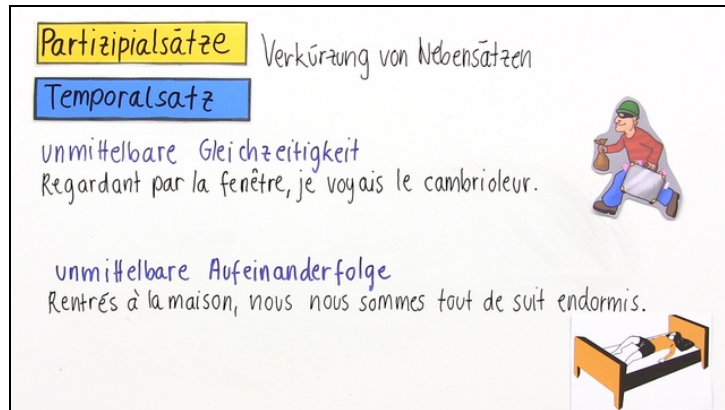 Partizipialsätze Verkürzung von Nebensätzen
Temporalsatz
unmittelbare Gleichzeitigkeit
Regardant par la fenêtre, je voyais le cambrioleur.
unmittelbare Aufeinanderfolge
Rentrés à la maison, nous nous sommes tout de suit endormis.